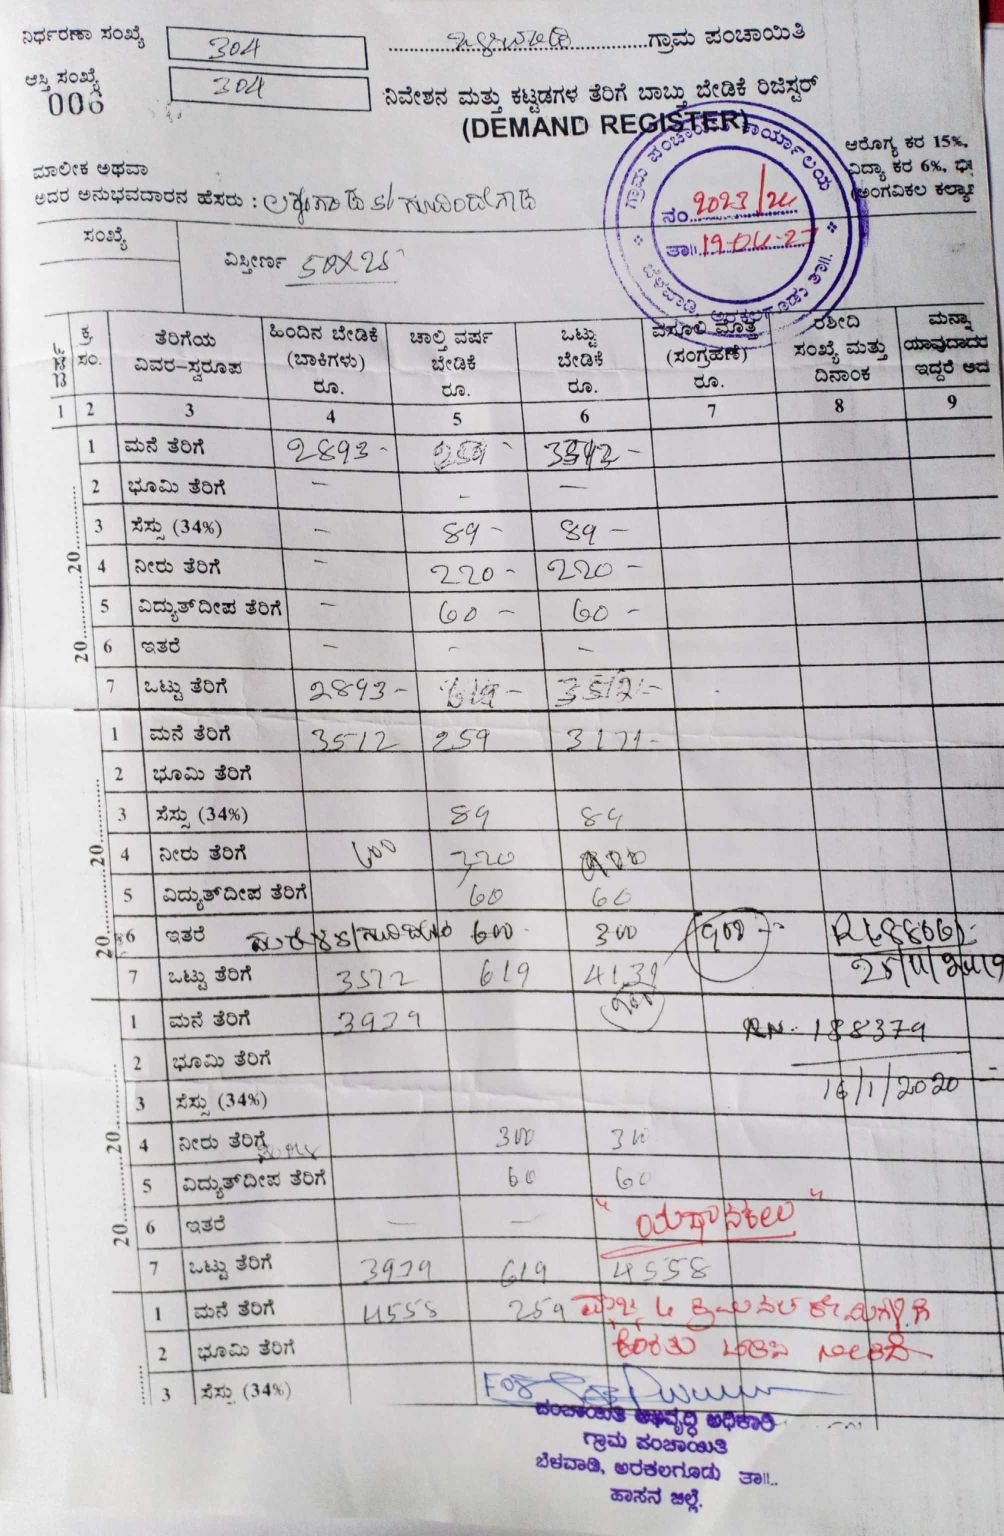 ನಿರ್ಧರಣಾ ಸಂಖ್ಯೆ 304 ಗ್ರಾಮ ಪಂಚಾಯಿತಿ
ಆಸ್ತಿ ಸಂಖ್ಯೆ 304
006
ನಿವೇಶನ ಮತ್ತು ಕಟ್ಟಡಗಳ ತೆರಿಗೆ ಬಾಬ್ತು ಬೇಡಿಕೆ ರಿಜಿಸ್ಟರ್
(DEMAND REGISTER)
ಆರೋಗ್ಯ ಕರ 15%,
ವಿದ್ಯಾ ಕರ 6%,
(ಅಂಗವಿಕಲ
ಮಾಲೀಕ ಅಥವಾ
ಅದರ ಅನುಭವದಾರನ ಹೆಸರು :
ಗ್ರಾಮ ಪಂಚಾಯಿತಿ ಕಾರ್ಯಾಲಯ
ನಂ. 2023/24
ತಾ॥ 19-04-23
ಬೆಳವಾಡಿ, ಅರಕಲಗೂಡು ತಾ॥.
ಸಂಖ್ಯೆ
ವಿಸ್ತೀರ್ಣ 50X25
ವರ್ಷ ಕ್ರ. ಸಂ. ತೆರಿಗೆಯ ವಿವರ-ಸ್ವರೂಪ ಹಿಂದಿನ ಬೇಡಿಕೆ (ಬಾಕಿಗಳು) ರೂ. ಚಾಲ್ತಿ ವರ್ಷ ಬೇಡಿಕೆ ರೂ. ಒಟ್ಟು ಬೇಡಿಕೆ ರೂ. ವಸೂಲಿ ಮೊತ್ತ (ಸಂಗ್ರಹಣೆ) ರೂ. ರಶೀದಿ ಸಂಖ್ಯೆ ಮತ್ತು ದಿನಾಂಕ ಮನ್ನಾ ಯಾವುದಾದರ ಇದ್ದರೆ ಅದ
1 2 3 4 5 6 7 8 9
1 ಮನೆ ತೆರಿಗೆ 2893 -
2 ಭೂಮಿ ತೆರಿಗೆ - - -
3 ಸೆಸ್ಸು (34%) - 89 - 89 -
4 ನೀರು ತೆರಿಗೆ - 220 - 220 -
5 ವಿದ್ಯುತ್‌ದೀಪ ತೆರಿಗೆ - 60 - 60 -
6 ಇತರೆ - - -
7 ಒಟ್ಟು ತೆರಿಗೆ 2893 - 619 - 3512 -
20........20........
1 ಮನೆ ತೆರಿಗೆ 3512 259
2 ಭೂಮಿ ತೆರಿಗೆ
3 ಸೆಸ್ಸು (34%) 89 89
4 ನೀರು ತೆರಿಗೆ 600 220
5 ವಿದ್ಯುತ್‌ದೀಪ ತೆರಿಗೆ 60 60
6 ಇತರೆ 600 300 900
25/11/2019
7 ಒಟ್ಟು ತೆರಿಗೆ 3512 619 4131
20........20........
1 ಮನೆ ತೆರಿಗೆ 3939 RN. 188379
2 ಭೂಮಿ ತೆರಿಗೆ
16/1/2020
3 ಸೆಸ್ಸು (34%)
4 ನೀರು ತೆರಿಗೆ 300 300
5 ವಿದ್ಯುತ್‌ದೀಪ ತೆರಿಗೆ 60 60
6 ಇತರೆ - -
7 ಒಟ್ಟು ತೆರಿಗೆ 3939 619 4558
20........20........
1 ಮನೆ ತೆರಿಗೆ 4558 259
2 ಭೂಮಿ ತೆರಿಗೆ
3 ಸೆಸ್ಸು (34%)
ಪಂಚಾಯಿತಿ ಅಭಿವೃದ್ಧಿ ಅಧಿಕಾರಿ
ಗ್ರಾಮ ಪಂಚಾಯಿತಿ
ಬೆಳವಾಡಿ, ಅರಕಲಗೂಡು ತಾ॥.
ಹಾಸನ ಜಿಲ್ಲೆ.